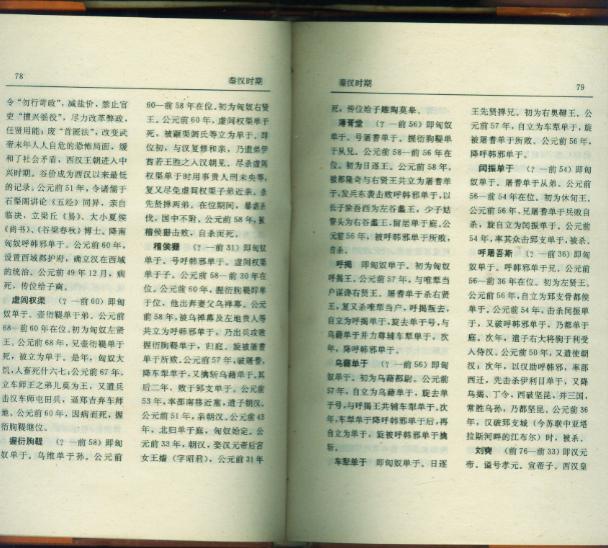 78
秦汉时期
令“勿行苛政”，减盐价，禁止官
吏“擅兴徭役”，尽力改革弊政，
任贤用能；废“首匿法”，改变武
帝末年人人自危的恐怖局面，缓
和了社会矛盾，西汉王朝进入中
兴时期。谷价成为西汉以来最低
的记录。公元前51年，令诸儒于
石渠阁讲论《五经》同异，亲自
临决，立梁丘《易》、大小夏侯
《尚书》、《谷梁春秋》博士。降南
匈奴呼韩邪单于。公元前60年，
设置西域都护府，确立汉在西域
的统治。公元前49年12月，病
死，传位给子奭。
虚闾权渠 （？—前60）即匈
奴单于。壶衍鞮单于弟。公元前
68—前60年在位。初为匈奴左贤
王。公元前68年，兄壶衍鞮单于
死，被立为单于。是年，匈奴大
饥，人畜死什六七。公元前67年，
立车师王之弟兜莫为王，又遣兵
击汉车师屯田兵，逼郑吉弃车师
地。公元前60年，因病而死。握
衍朐鞮继位。
握衍朐鞮 （？—前58）即匈
奴单于。乌维单于孙。公元前
60—前58年在位。初为匈奴右贤
王。公元前60年，虚闾权渠单于
死，被颛渠阏氏等立为单于。即
位初，与汉复修和亲，乃遣弟伊
酋若王胜之入汉朝见。尽杀虚闾
权渠单于时用事贵人刑未央等，
复又尽免虚闾权渠子弟近亲。杀
先贤掸两弟。在位期间，暴虐杀
伐，国中不附。公元前58年，被
稽侯狦击败，自杀而死。
稽侯狦 （？—前31）即匈奴
单于。号呼韩邪单于。虚闾权渠
单于子。公元前58—前30年在
位。公元前60年，握衍朐鞮即单
于位，他出奔妻父乌禅幕。公元
前58年，被乌禅幕及左地贵人等
共立为呼韩邪单于。乃出兵攻败
握衍朐鞮单于，归庭。旋被屠耆
单于所败。公元前57年，破屠耆，
降车犁单于，又擒斩乌藉单于。其
后二年，败于郅支单于。公元前
53年，率部南移近塞，遣子朝汉。
公元前51年，亲朝汉。公元前43
年，北归单于庭，匈奴始定。公
元前33年，朝汉，娶汉元帝后宫
女王嫱（字昭君）。公元前31年
秦汉时期
79
死，传位给子雕陶莫皋。
屠耆堂 （？—前56）即匈奴
单于。号屠耆单于。握衍朐鞮单
于从兄。公元前58—前56年在
位。初为日逐王。公元前58年，
被都隆奇与右贤王共立为屠耆单
于，发兵东袭击败呼韩邪单于，以
长子涂吾西为左谷蠡王，少子姑
瞀头为右谷蠡王，留居单于庭。公
元前56年，被呼韩邪单于所败，
自杀。
呼揭 即匈奴单于。初为匈奴
呼揭王。公元前57年，与唯犁当
户谋谗右贤王。屠耆单于杀右贤
王，复又杀唯犁当户，呼揭叛去，
自立为呼揭单于，旋去单于号，与
乌藉单于并力尊辅车犁单于。次
年，降呼韩邪单于。
乌藉单于 （？—前56）即匈
奴单于。初为乌藉都尉。公元前
57年，自立为乌藉单于，旋去单
于号，与呼揭王共辅车犁单于。次
年，车犁单于降呼韩邪单于后，再
自立为单于，旋被呼韩邪单于擒
斩。
车犁单于 即匈奴单于。日逐
王先贤掸兄。初为右奥鞬王。公
元前57年，自立为车犁单于，旋
被屠耆单于所败。公元前56年，
降呼韩邪单于。
闰振单于 （？—前54）即匈
奴单于。屠耆单于从弟。公元前
56—前54年在位。初为休旬王。公
元前56年，兄屠耆单于兵败自
杀，旋自立为闰振单于。公元前
54年，率其众击郅支单于，被杀。
呼屠吾斯 （？—前36）即匈
奴单于。呼韩邪单于兄。公元前
56—前36年在位。初为左贤王。
公元前56年，自立为郅支骨都侯
单于。公元前54年，击杀闰振单
于，又破呼韩邪单于，乃都单于
庭。次年，遣子右大将驹于利受
入侍汉。公元前50年，又遣使朝
汉；次年，以汉助呼韩邪，率部
西迁，先击杀伊利目单于，又降
乌揭、丁令，西破坚昆，并三国，
常胜乌孙，乃都坚昆。公元前36
年，汉破郅支城（今苏联中亚塔
拉斯河畔的江布尔）时，被杀。
刘奭 （前76—前33）即汉元
帝。谥号孝元。宣帝子。西汉皇